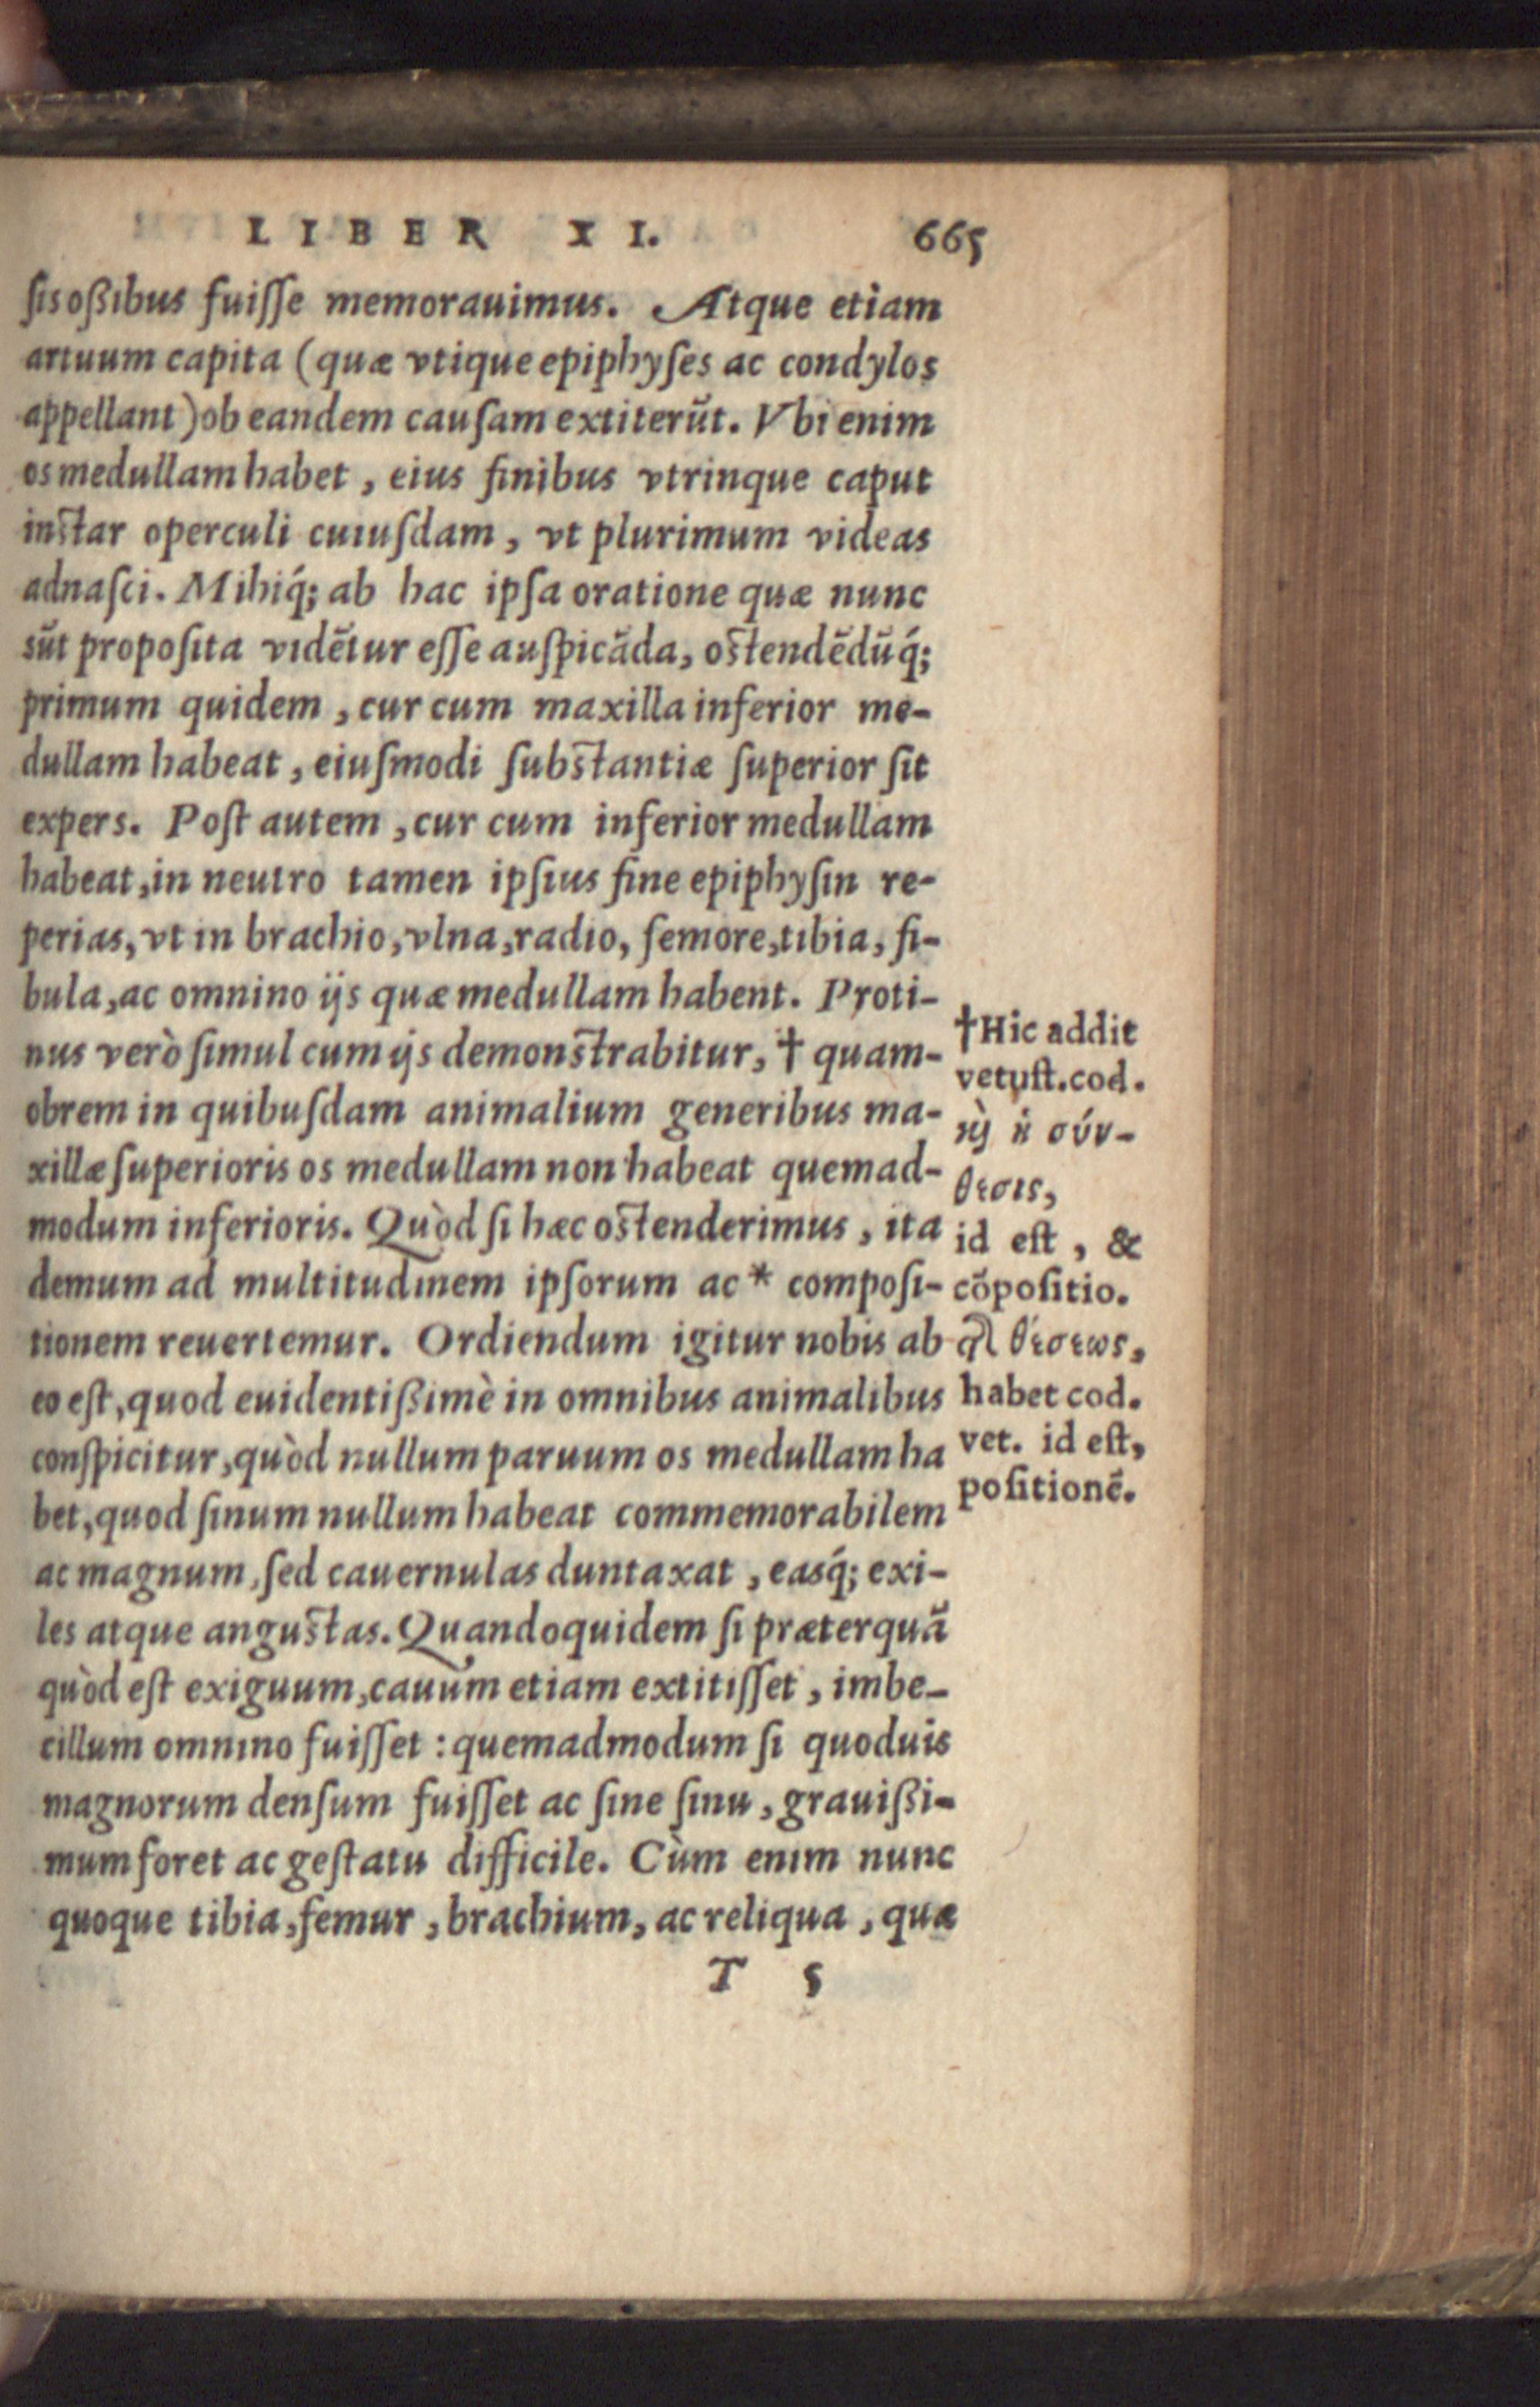 LIBER XI. 665
ſis oßibus fuiſſe memorauimus. Atque etiam
artuum capita (quæ vtique epiphyſes ac condylos
appellant) ob eandem cauſam extiterũt. Vbi enim
os medullam habet, eius finibus vtrinque caput
inſtar operculi cuiuſdam, vt plurimum videas
adnaſci. Mihiq́; ab hac ipſa oratione quæ nunc
sũt propoſita vidẽtur eſſe auſpicãda, oſtendẽdũq́;
primum quidem, cur cum maxilla inferior me-
dullam habeat, eiuſmodi ſubſtantiæ ſuperior ſit
expers. Poſt autem, cur cum inferior medullam
habeat, in neutro tamen ipſius fine epiphyſin re-
perias, vt in brachio, vlna, radio, femore, tibia, fi-
bula, ac omnino ijs quæ medullam habent. Proti-
nus verò ſimul cum ijs demonſtrabitur, † quam-
obrem in quibuſdam animalium generibus ma-
xillæ ſuperioris os medullam non habeat quemad-
modum inferioris. Quòd ſi hæc oſtenderimus, ita
demum ad multitudinem ipſorum ac * compoſi-
tionem reuertemur. Ordiendum igitur nobis ab
eo eſt, quod euidentißimè in omnibus animalibus
conſpicitur, quòd nullum paruum os medullam ha
bet, quod ſinum nullum habeat commemorabilem
ac magnum, ſed cauernulas duntaxat, easq́; exi-
les atque anguſtas. Quandoquidem ſi præterquã
quòd eſt exiguum, cauum etiam extitiſſet, imbe-
cillum omnino fuiſſet: quemadmodum ſi quoduis
magnorum denſum fuiſſet ac ſine ſinu, grauißi-
mum foret ac geſtatu difficile. Cùm enim nunc
quoque tibia, femur, brachium, ac reliqua, quæ
T 5
†Hic addit
vetuſt. cod.
ϗ̀ ἡ σύν-
θεσις,
id eſt, &
cõpoſitio.
θέσεως,
habet cod.
vet. id eſt,
poſitionẽ.